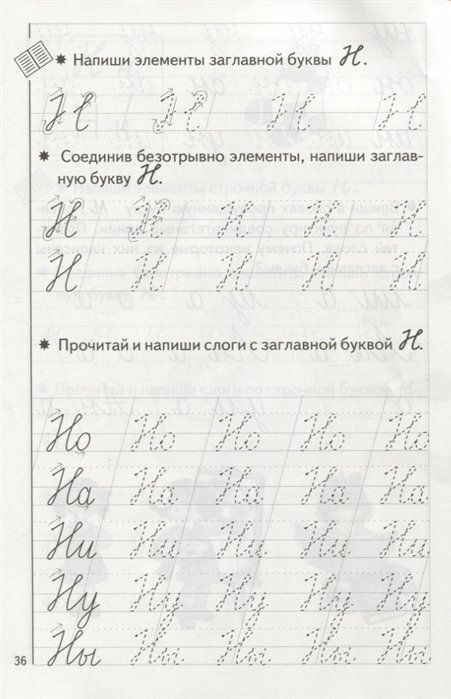 ✷ Напиши элементы заглавной буквы Н.
Н Н Н Н
✷ Соединив безотрывно элементы, напиши заглав-
ную букву Н.
Н Н Н Н Н Н
Н Н Н Н Н Н
✷ Прочитай и напиши слоги с заглавной буквой Н.
Но Но Но Но Но
На На На На На
Ни Ни Ни Ни Ни
Ну Ну Ну Ну Ну
Ны Ны Ны Ны Ны
36